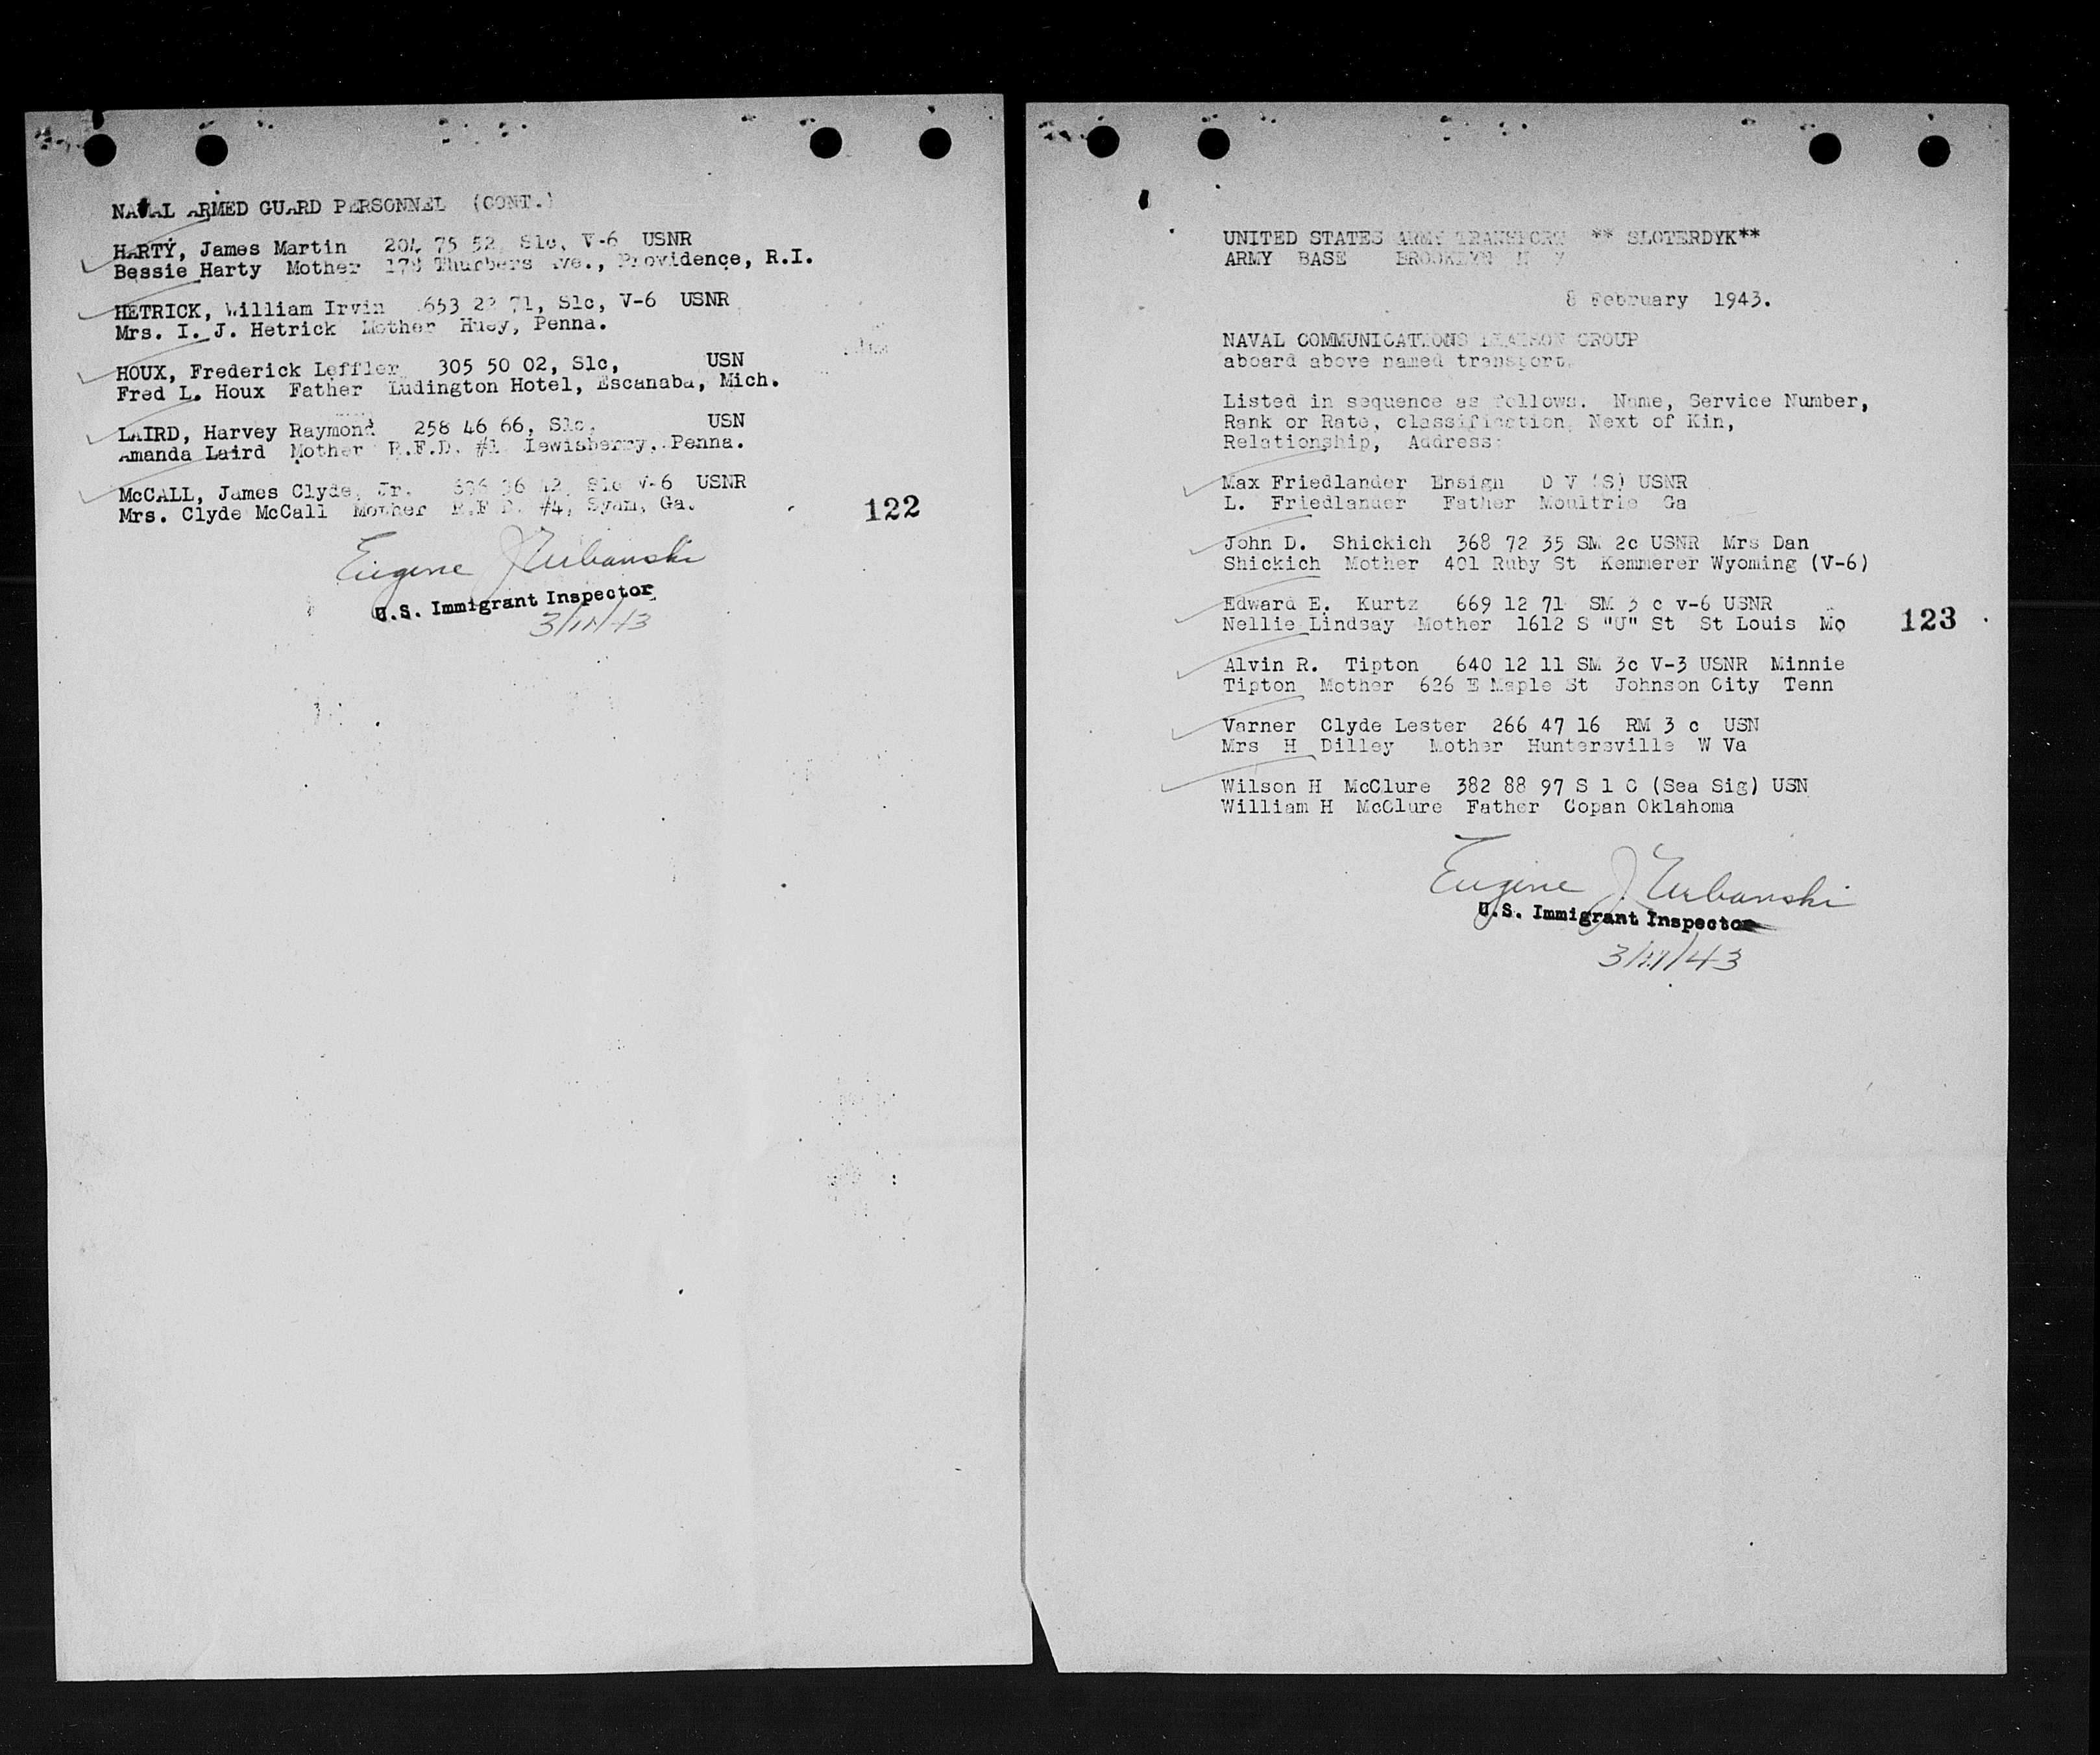 NAVAL ARMED GUARD PERSONNEL (CONT.)
HARTY, James Martin 204 75 52, S1c, V-6 USNR
Bessie Harty Mother 178 Thurbers Ave., Providence, R.I.
HETRICK, William Irvin 653 22 71, S1c, V-6 USNR
Mrs. I. J. Hetrick Mother Huey, Penna.
HOUX, Frederick Leffler 305 50 02, S1c, USN
Fred L. Houx Father Ludington Hotel, Escanaba, Mich.
LAIRD, Harvey Raymond 258 46 66, S1c, USN
Amanda Laird Mother R.F.D. #1 Lewisberry, Penna.
McCALL, James Clyde, Jr. S1c V-6 USNR
Mrs. Clyde McCall Mother R.F.D. #4, Ga.
122
Eugene J Urbanski
U.S. Immigrant Inspector
UNITED STATES ARMY TRANSPORT ** SLOTERDYK**
ARMY BASE BROOKLYN N Y
8 February 1943.
NAVAL COMMUNICATIONS LIAISON GROUP
aboard above named transport.
Listed in sequence as follows. Name, Service Number,
Rank or Rate, classification, Next of Kin,
Relationship, Address:
Max Friedlander Ensign D V (S) USNR
L. Friedlander Father Moultrie Ga
John D. Shickich 368 72 35 SM 2c USNR Mrs Dan
Shickich Mother 401 Ruby St Kemmerer Wyoming (V-6)
Edward E. Kurtz 669 12 71 SM 3 c v-6 USNR
Nellie Lindsay Mother 1612 S "U" St St Louis Mo
123
Alvin R. Tipton 640 12 11 SM 3c V-3 USNR Minnie
Tipton Mother 626 E Maple St Johnson City Tenn
Varner Clyde Lester 266 47 16 RM 3 c USN
Mrs H Dilley Mother Huntersville W Va
Wilson H McClure 382 88 97 S 1 C (Sea Sig) USN
William H McClure Father Copan Oklahoma
Eugene J Urbanski
U.S. Immigrant Inspector